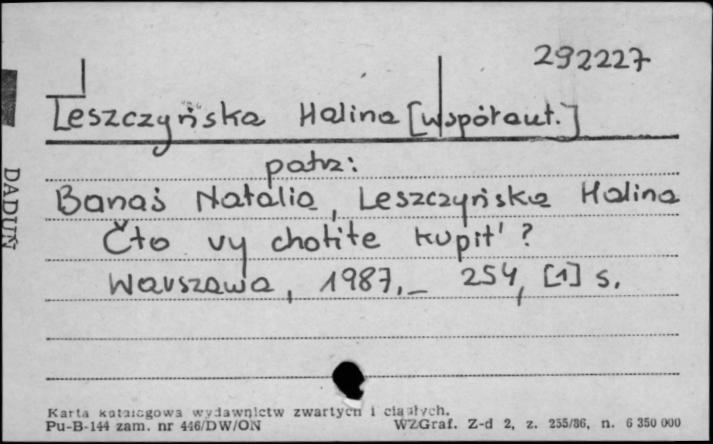 292227
Leszczyńska Halina [współaut.]
patrz:
Banaś Natalia, Leszczyńska Halina
Čto vy chotite kupit' ?
Warszawa, 1987._ 254, [1] s.
DADUŃ
Karta katalogowa wydawnictw zwartych i ciągłych.
Pu-B-144 zam. nr 446/DW/ON WZGraf. Z-d 2, z. 255/86, n. 6 350 000